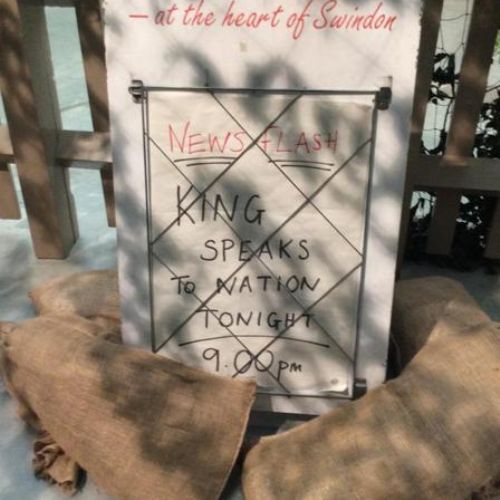 — at the heart of Swindon
NEWS FLASH
KING
SPEAKS
TO NATION
TONIGHT
9.00 pm